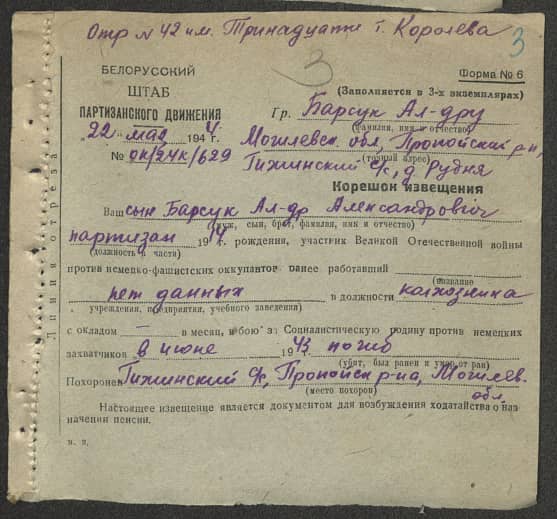 Отр N 42 им. Тринадцати т. Королева
3
3
БЕЛОРУССКИЙ
ШТАБ
ПАРТИЗАНСКОГО ДВИЖЕНИЯ
Форма № 6
(Заполняется в 3-х экземплярах)
Гр. Барсук Ал-дру
(фамилия, имя и отчество)
22 мая 1944.
Могилевск. обл, Пропойский р-н,
(точный адрес)
№ ок/24к/629
Гижинский с/с, д. Рудня
Корешок извещения
Линия отреза
Ваш сын Барсук Ал-др Александрович
(муж, сын, брат, фамилия, имя и отчество)
партизан 19 рождения, участник Великой Отечественной войны
(должность и часть)
против немецко-фашистских оккупантов ранее работавший
(название
нет данных в должности колхозника
учреждения, предприятия, учебного заведения)
с окладом — в месяц, в бою за Социалистическую родину против немецких
захватчиков в июне 1943 погиб
(убит, был ранен и умер от ран)
Похоронен Гижинский с/с, Пропойск р-на, Могилев. обл.
(место похорон)
Настоящее извещение является документом для возбуждения ходатайства о наз
начении пенсии.
м. п.